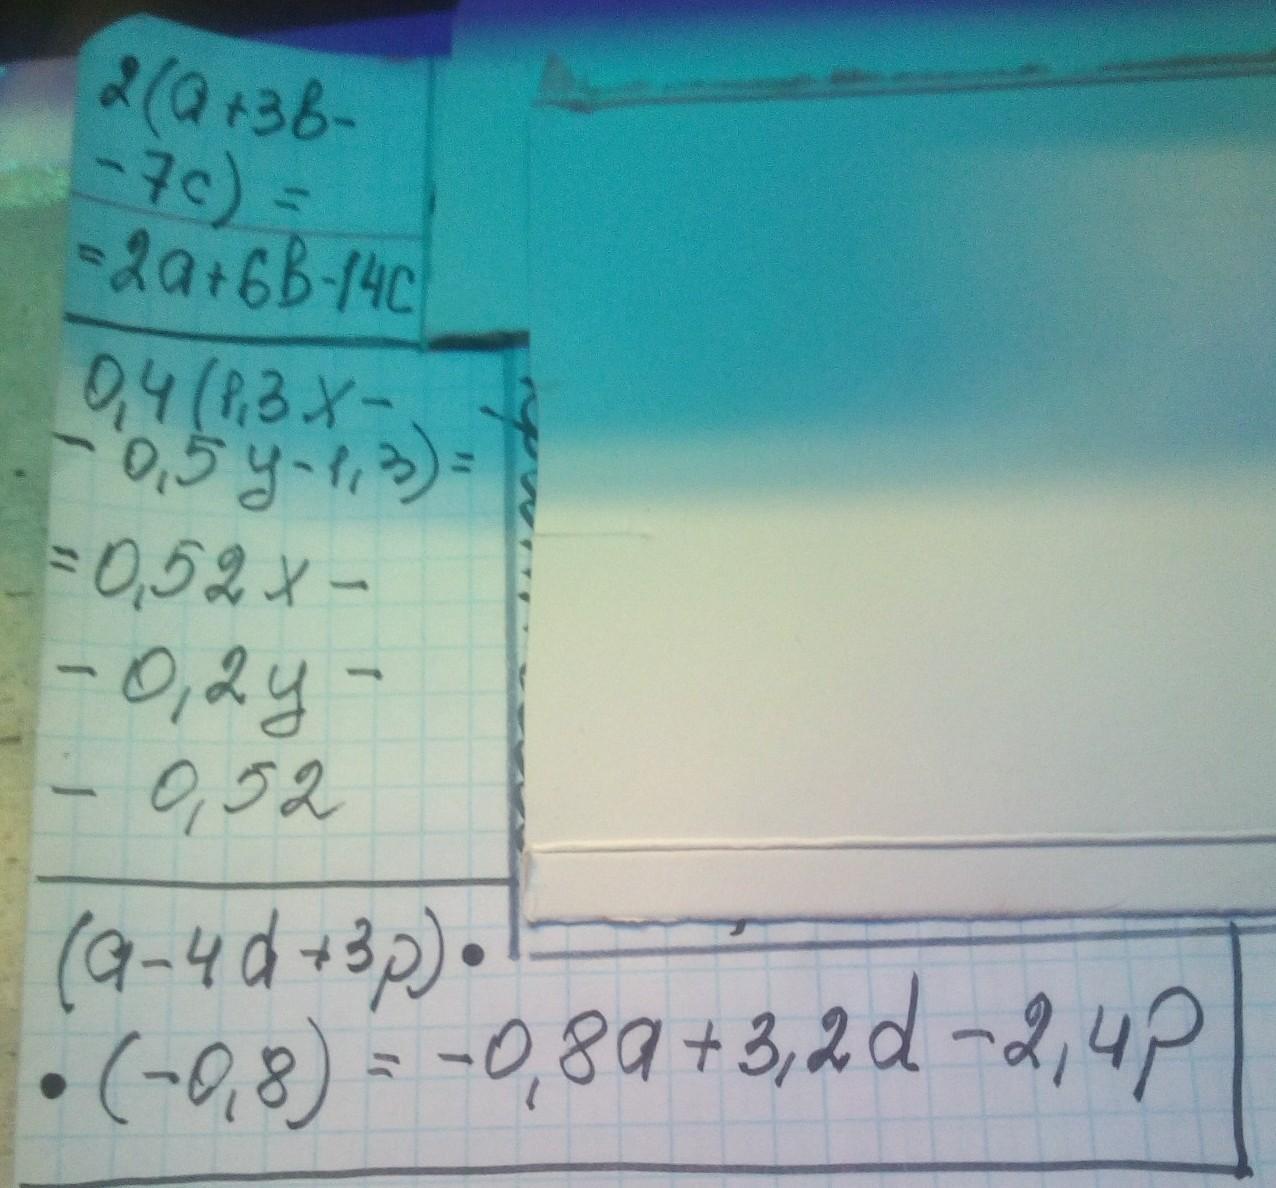 2(a+3b-
-7c) =
=2a+6b-14c
0,4(1,3x-
-0,5y-1,3)=
=0,52x-
-0,2y-
-0,52
(a-4d+3p)•
•(-0,8) = -0,8a+3,2d-2,4p